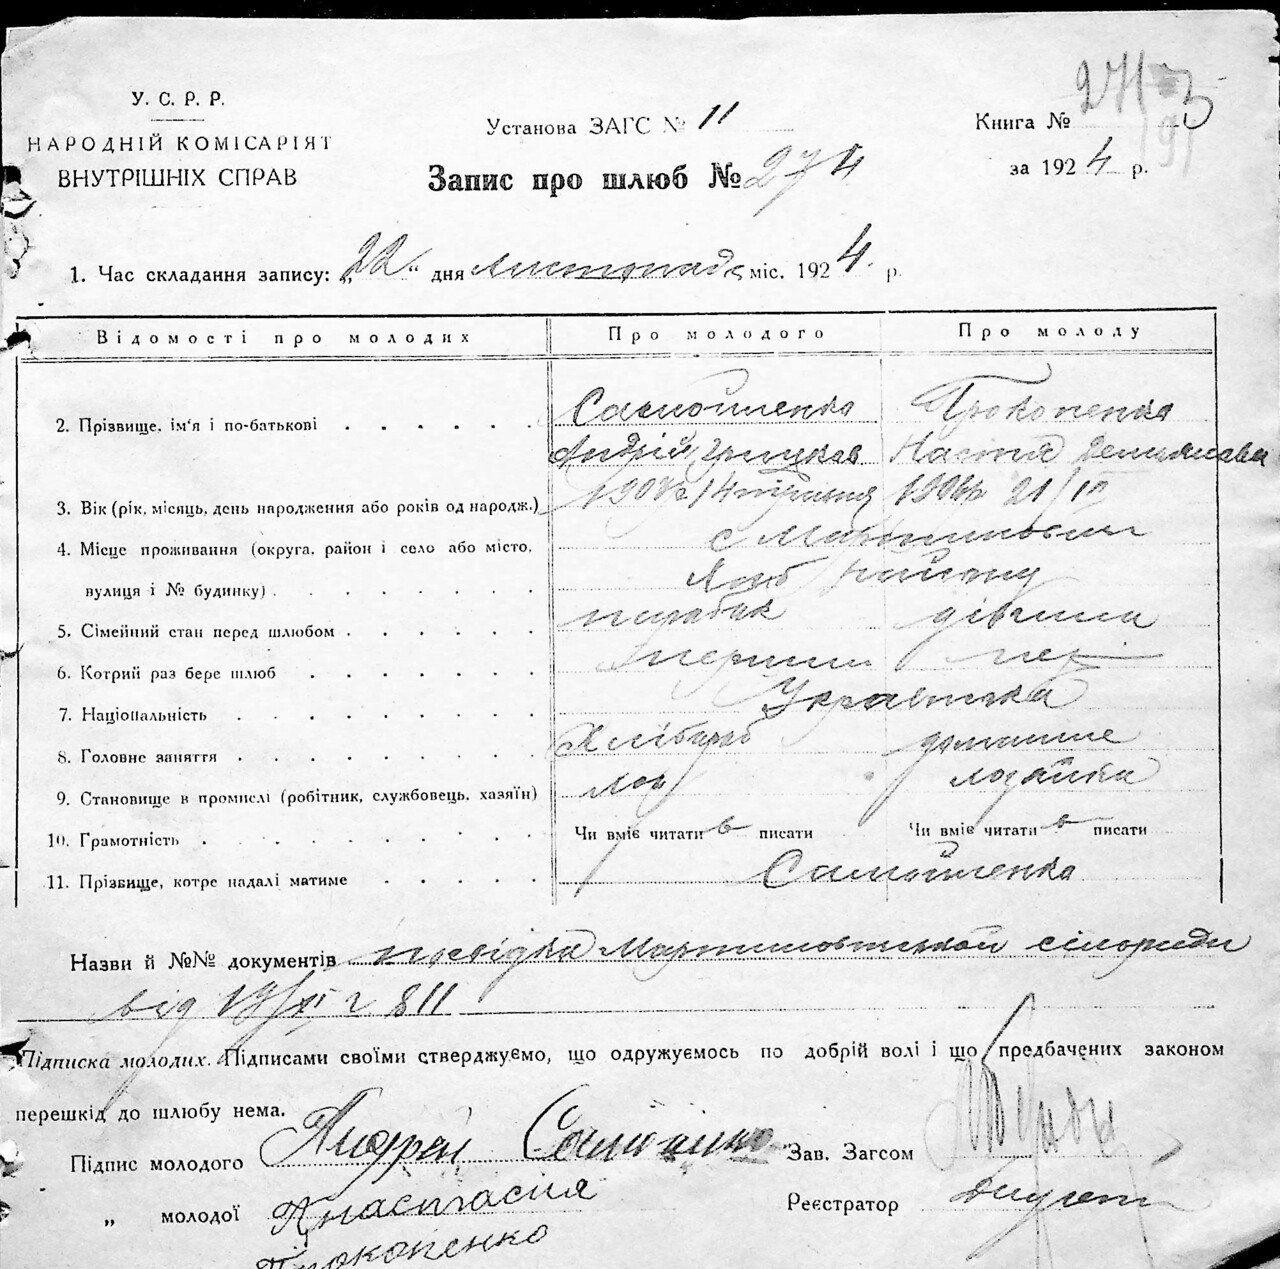 У. С. Р. Р.
НАРОДНІЙ КОМІСАРІЯТ
ВНУТРІШНІХ СПРАВ
Установа ЗАГС № 11
Запис про шлюб № 274
Книга №
за 1924 р.
1. Час складання запису: „22" дня листопада міс. 1924 р.
Відомості про молодих Про молодого Про молоду
2. Прізвище, ім'я і по-батькові Самойленко Прокопенко
Андрій Настя Демьянова
3. Вік (рік, місяць, день народження або років од народж.)
4. Місце проживання (округа, район і село або місто, с
вулиця і № будинку) району
5. Сімейний стан перед шлюбом парубок дівчина
6. Котрий раз бере шлюб перший пер
7. Національність Українська
8. Головне заняття Хлібороб домашнє
9. Становище в промислі (робітник, службовець, хазяїн)
10. Грамотність Чи вміє читати писати Чи вміє читати писати
11. Прізвище, котре надалі матиме Самойленко
Назви й №№ документів посвідка Мартиновської сільради
від 19/XI 2 811
Підписка молодих. Підписами своїми стверджуємо, що одружуємось по добрій волі і що предбачених законом
перешкід до шлюбу нема.
Підпис молодого Андрей Зав. Загсом
„ молодої Анастасия Реєстратор
Прокопенко